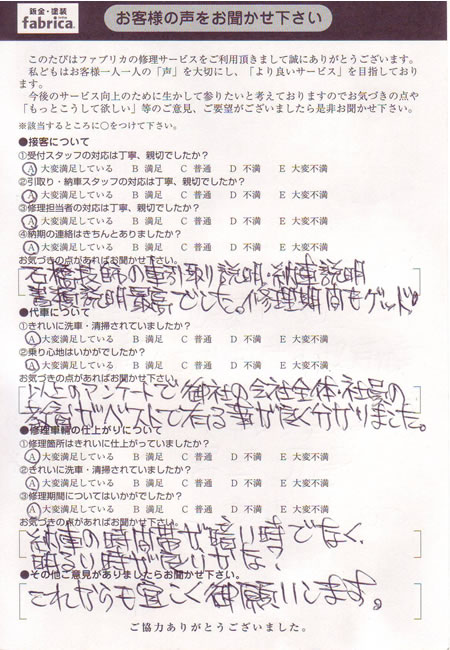 鈑金・塗装
fabrica.
お客様の声をお聞かせ下さい
このたびはファブリカの修理サービスをご利用頂きまして誠にありがとうございます。
私どもはお客様一人一人の「声」を大切にし、「より良いサービス」を目指しており
ます。
今後のサービス向上のために生かして参りたいと考えておりますのでお気づきの点や
「もっとこうして欲しい」等のご意見、ご要望がございましたら是非お聞かせ下さい。
※該当するところに○をつけて下さい。
●接客について
①受付スタッフの対応は丁寧、親切でしたか？
A 大変満足している B 満足 C 普通 D 不満 E 大変不満
②引取り・納車スタッフの対応は丁寧、親切でしたか？
A 大変満足している B 満足 C 普通 D 不満 E 大変不満
③修理担当者の対応は丁寧、親切でしたか？
A 大変満足している B 満足 C 普通 D 不満 E 大変不満
④納期の連絡はきちんとありましたか？
A 大変満足している B 満足 C 普通 D 不満 E 大変不満
お気づきの点があればお聞かせ下さい。
の車引取り説明・納車説明
説明最高でした。修理期間もグッド。
●代車について
①きれいに洗車・清掃されていましたか？
A 大変満足している B 満足 C 普通 D 不満 E 大変不満
②乗り心地はいかがでしたか？
A 大変満足している B 満足 C 普通 D 不満 E 大変不満
お気づきの点があればお聞かせ下さい。
以上のアンケートで御社の会社全体・社員の
がベストで有る事が良く分かりました。
●修理車輌の仕上がりについて
①修理箇所はきれいに仕上がっていましたか？
A 大変満足している B 満足 C 普通 D 不満 E 大変不満
②きれいに洗車・清掃されていましたか？
A 大変満足している B 満足 C 普通 D 不満 E 大変不満
③修理期間についてはいかがでしたか？
A 大変満足している B 満足 C 普通 D 不満 E 大変不満
お気づきの点があればお聞かせ下さい。
納車の時間帯が暗い時でなく、
明るい時が良いかな？
●その他ご意見がありましたらお聞かせ下さい。
これからも宜しく御願いします。
ご協力ありがとうございました。